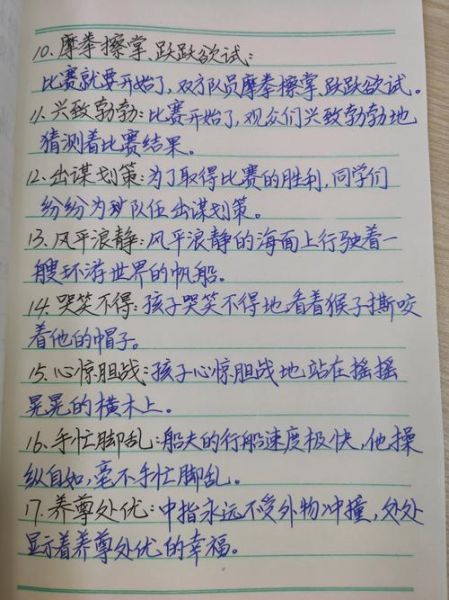 10.摩拳擦掌、跃跃欲试:
比赛就要开始了,双方队员摩拳擦掌、跃跃欲试。
11.兴致勃勃:比赛开始了,观众们兴致勃勃地
猜测着比赛结果。
12.出谋划策:为了取得比赛的胜利,同学们
纷纷为球队在出谋划策。
13.风平浪静:风平浪静的海面上行驶着一
艘环游世界的帆船。
14.哭笑不得:孩子哭笑不得地看着猴子撕咬
着他的帽子。
15.心惊胆战:孩子心惊胆战地站在摇摇
晃晃的横木上。
16.手忙脚乱:船夫的行船速度极快,他操
纵自如,毫不手忙脚乱。
17.养尊处优:中指永远不受外物冲撞,处处
显示着养尊处优的幸福。